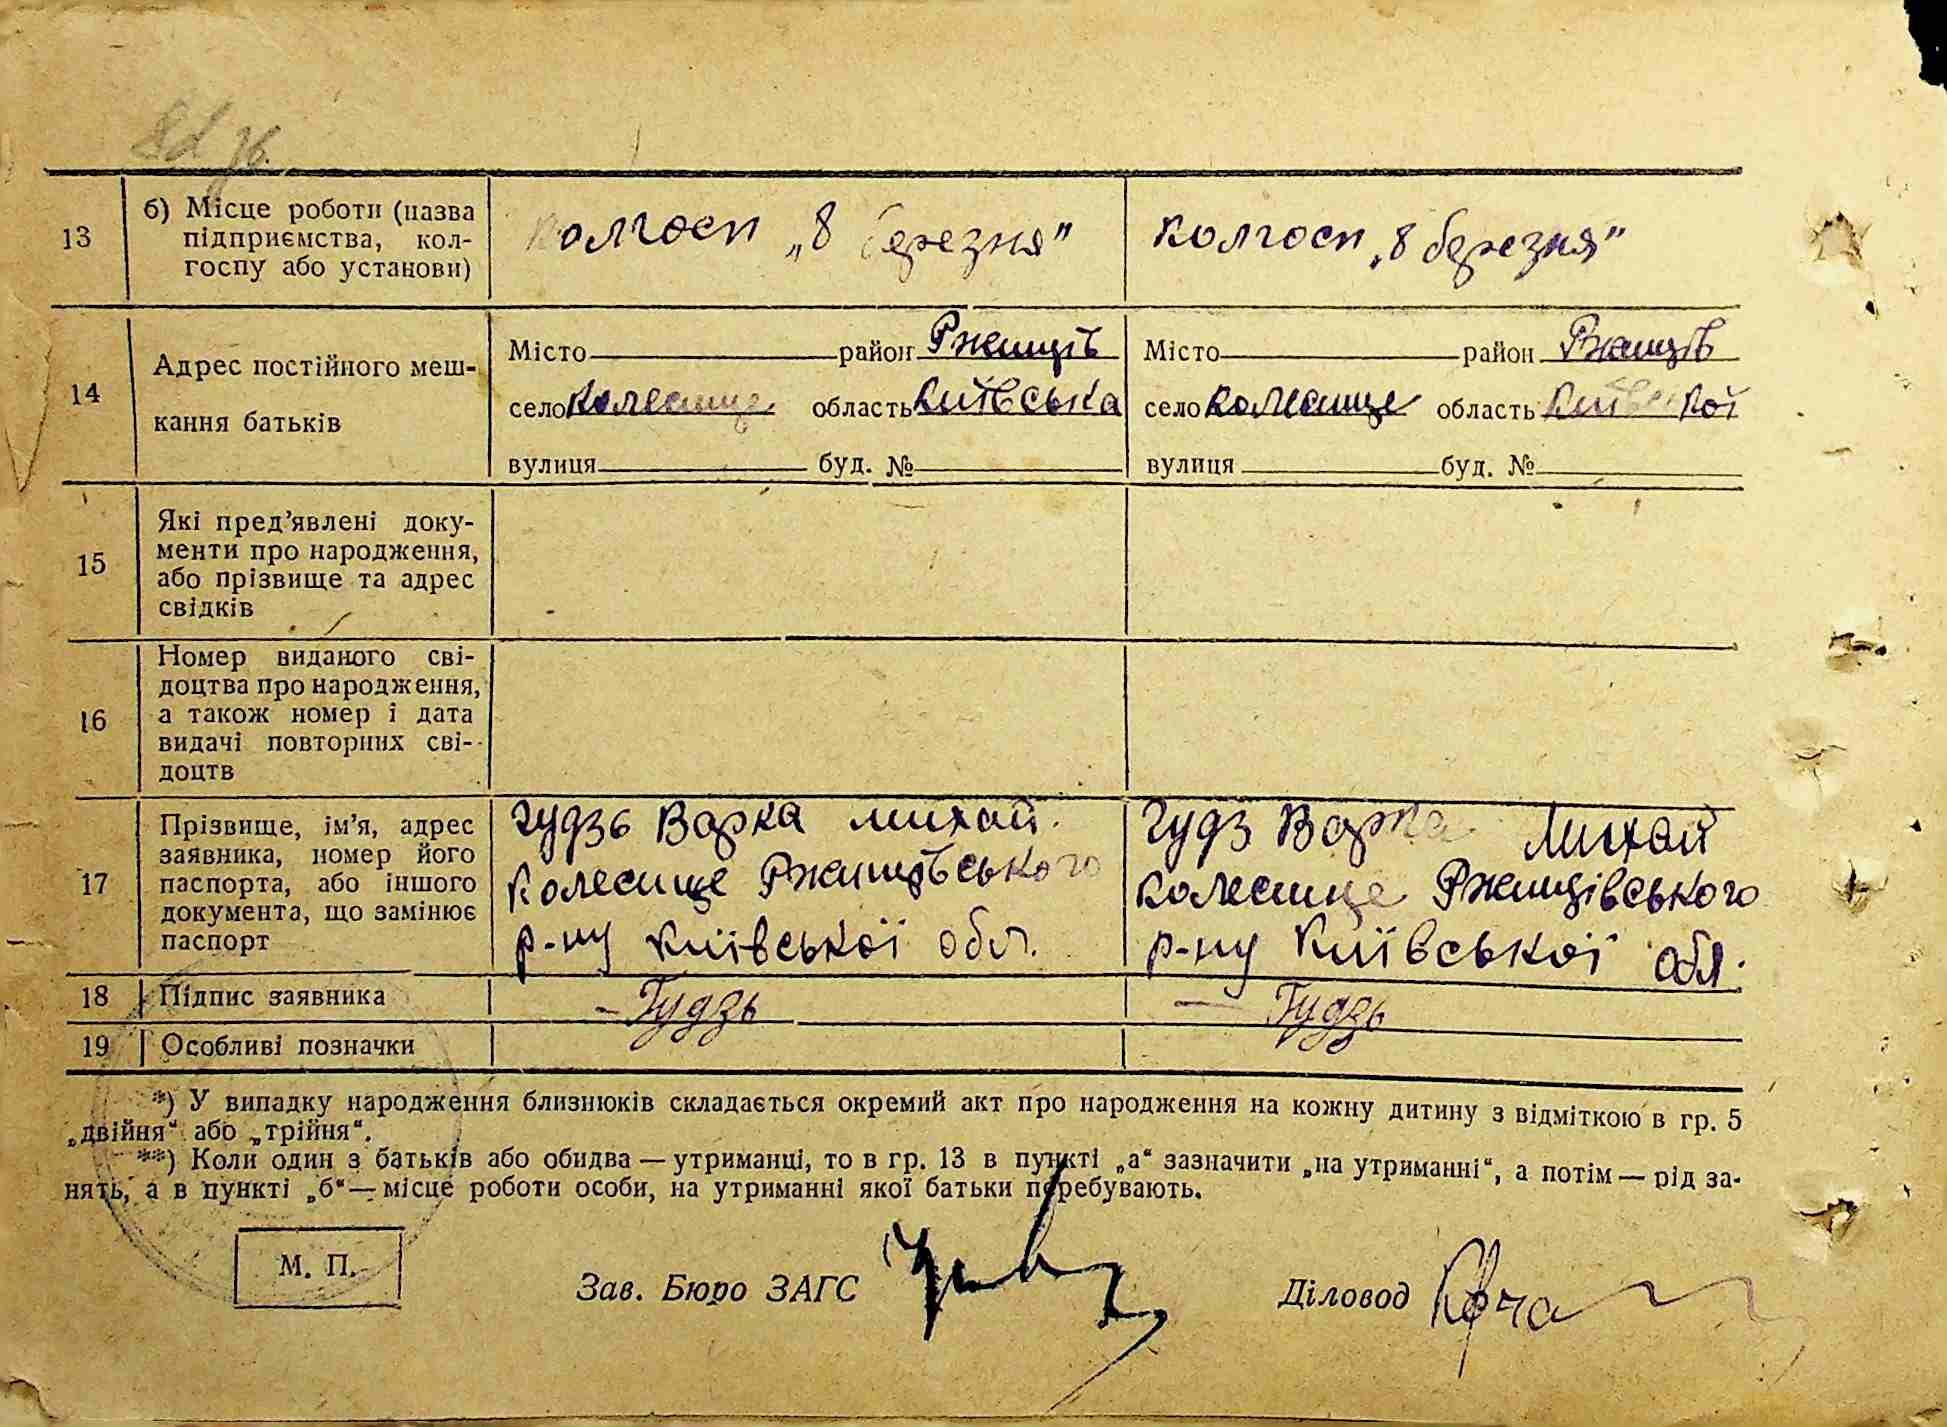 13 б) Місце роботи (назва підприємства, кол-
госпу або установи)
колгосп „8 березня"
колгосп „8 березня"
14 Адрес постійного меш-
кання батьків
Місто район Ржищів
село Колесище область Київська
вулиця буд. №
Місто район Ржищів
село Колесище область Київської
вулиця буд. №
15 Які пред’явлені доку-
менти про народження,
або прізвище та адрес
свідків
16 Номер виданого сві-
доцтва про народження,
а також номер і дата
видачі повторних сві-
доцтв
17 Прізвище, ім’я, адрес
заявника, номер його
паспорта, або іншого
документа, що замінює
паспорт
Гудзь Варка Михай.
Колесище Ржищівського
р-ну Київської обл.
Гудз Варка Михай
Колесище Ржищівського
р-ну Київської обл.
18 Підпис заявника
– Гудзь
– Гудзь
19 Особливі позначки
*) У випадку народження близнюків складається окремий акт про народження на кожну дитину з відміткою в гр. 5
„двійня“ або „трійня“.
**) Коли один з батьків або обидва — утриманці, то в гр. 13 в пункті „а“ зазначити „на утриманні“, а потім — рід за-
нять, а в пункті „б“ — місце роботи особи, на утриманні якої батьки перебувають.
М. П.
Зав. Бюро ЗАГС
Діловод